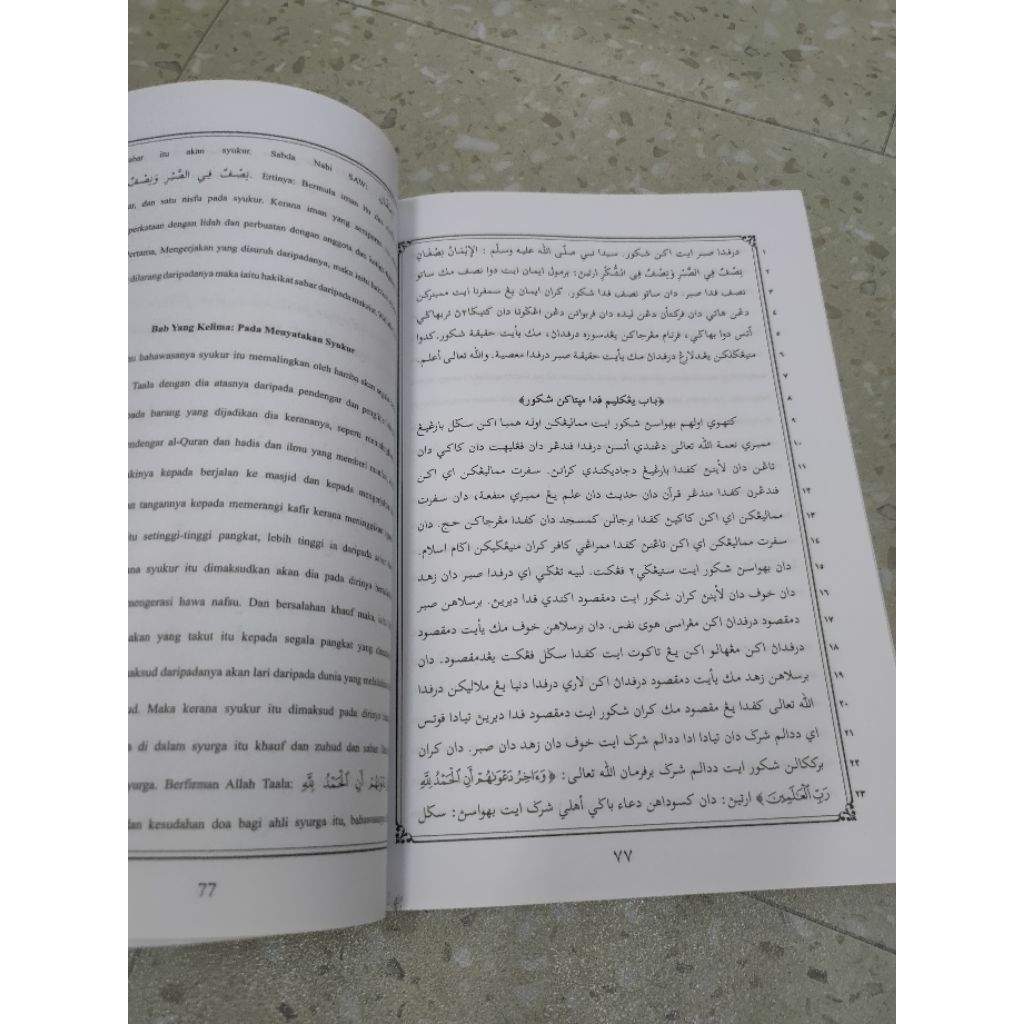 abar itu akan syukur. Sabda Nabi SAW:
نِصْفٌ فِي الصَّبْرِ وَنِصْفٌ. Ertinya: Bermula iman itu dua
ar, dan satu nisfu pada syukur. Kerana iman yang sempurna
perkataan dengan lidah dan perbuatan dengan anggota dan
Pertama, Mengerjakan yang disuruh daripadanya, maka iaitu
dilarang daripadanya maka iaitu hakikat sabar daripada maksiat.
Bab Yang Kelima: Pada Menyatakan Syukur
bahawasanya syukur itu memalingkan oleh hamba akan segala
Taala dengan dia atasnya daripada pendengar dan
pada barang yang dijadikan dia kerananya, seperti
endengar al-Quran dan hadis dan ilmu yang memberi
akinya kepada berjalan ke masjid dan kepada mengerjakan
n tangannya kepada memerangi kafir kerana meninggikan
tu setinggi-tinggi pangkat, lebih tinggi ia daripada sabar
na syukur itu dimaksudkan akan dia pada dirinya
mengerasi hawa nafsu. Dan bersalahan khauf maka
akan yang takut itu kepada segala pangkat yang
aksud daripadanya akan lari daripada dunia yang
ud. Maka kerana syukur itu dimaksud pada dirinya
a di dalam syurga itu khauf dan zuhud dan sabar.
yurga. Berfirman Allah Taala: دَعْوَىٰهُمْ أَنِ ٱلْحَمْدُ لِلَّهِ
dan kesudahan doa bagi ahli syurga itu, bahawasanya
77
درفدا صبر ايت اكن شكور. سبدا نبي صلّى الله عليه وسلّم: الإِيْمَانُ نِصْفَانِ ١
نِصْفٌ فِي الصَّبْرِ وَنِصْفٌ فِي الشُّكْرِ ارتين: برمول ايمان ايت دوا نصف مك ساتو ٢
نصف فدا صبر. دان ساتو نصف فدا شكور. كران ايمان يڠ سمفرنا ايت ممبنركن ٣
دڠن هاتي دان فركتأن دڠن ليده دان فربواتن دڠن اڠݢوتا دان كتيك٢ڽ تربهاݢي ٤
أتس دوا بهاݢي، فرتام مڠرجاكن يڠدسوره درفداڽ، مك يأيت حقيقة شكور. كدوا ٥
منيڠݢلكن يڠدلارڠ درفداڽ مك يأيت حقيقة صبر درفدا معصية. والله تعالى أعلم. ٦
٧
﴿باب يڠكليم فدا مڽتاكن شكور﴾ ٨
كتهوي اولهم بهواسڽ شكور ايت مماليڠكن اوله همبا اكن سݢل بارڠيڠ ٩
ممبري نعمة الله تعالى دڠندي أتسڽ درفدا فندڠر دان فڠليهت دان كاكي دان ١٠
تاڠن دان لأينڽ كفدا بارڠيڠ دجاديكندي كراناڽ. سفرت مماليڠكن اي اكن ١١
فندڠرن كفدا مندڠر قرآن دان حديث دان علم يڠ ممبري منفعة، دان سفرت ١٢
مماليڠكن اي اكن كاكيڽ كفدا برجالن كمسجد دان كفدا مڠرجاكن حج. دان ١٣
سفرت مماليڠكن اي اكن تاڠنڽ كفدا ممراڠي كافر كران منيڠݢيكن اݢام اسلام. ١٤
دان بهواسڽ شكور ايت ستيڠݢي٢ فڠكت. لبيه تڠݢي اي درفدا صبر دان زهد ١٥
دان خوف دان لأينڽ كران شكور ايت دمقصود اكندي فدا ديرين. برسلاهن صبر ١٦
دمقصود درفداڽ اكن مڠراسي هوى نفس. دان برسلاهن خوف مك يأيت دمقصود ١٧
درفداڽ اكن مڠهالو اكن يڠ تاكوت ايت كفدا سݢل فڠكت يڠدمقصود. دان ١٨
برسلاهن زهد مك يأيت دمقصود درفداڽ اكن لاري درفدا دنيا يڠ ملاليكن درفدا ١٩
الله تعالى كفدا يڠ مقصود مك كران شكور ايت دمقصود فدا ديرين تيادا فوتس ٢٠
اي ددالم شرݢ دان تيادا ادا ددالم شرݢ ايت خوف دان زهد دان صبر. دان كران ٢١
بركݢالن شكور ايت ددالم شرݢ برفرمان الله تعالى: ﴿وَءَاخِرُ دَعْوَىٰهُمْ أَنِ ٱلْحَمْدُ لِلَّهِ ٢٢
رَبِّ ٱلْعَٰلَمِينَ﴾ ارتين: دان كسوداهن دعاء باݢي أهلي شرݢ ايت بهواسڽ: سݢل ٢٣
٧٧